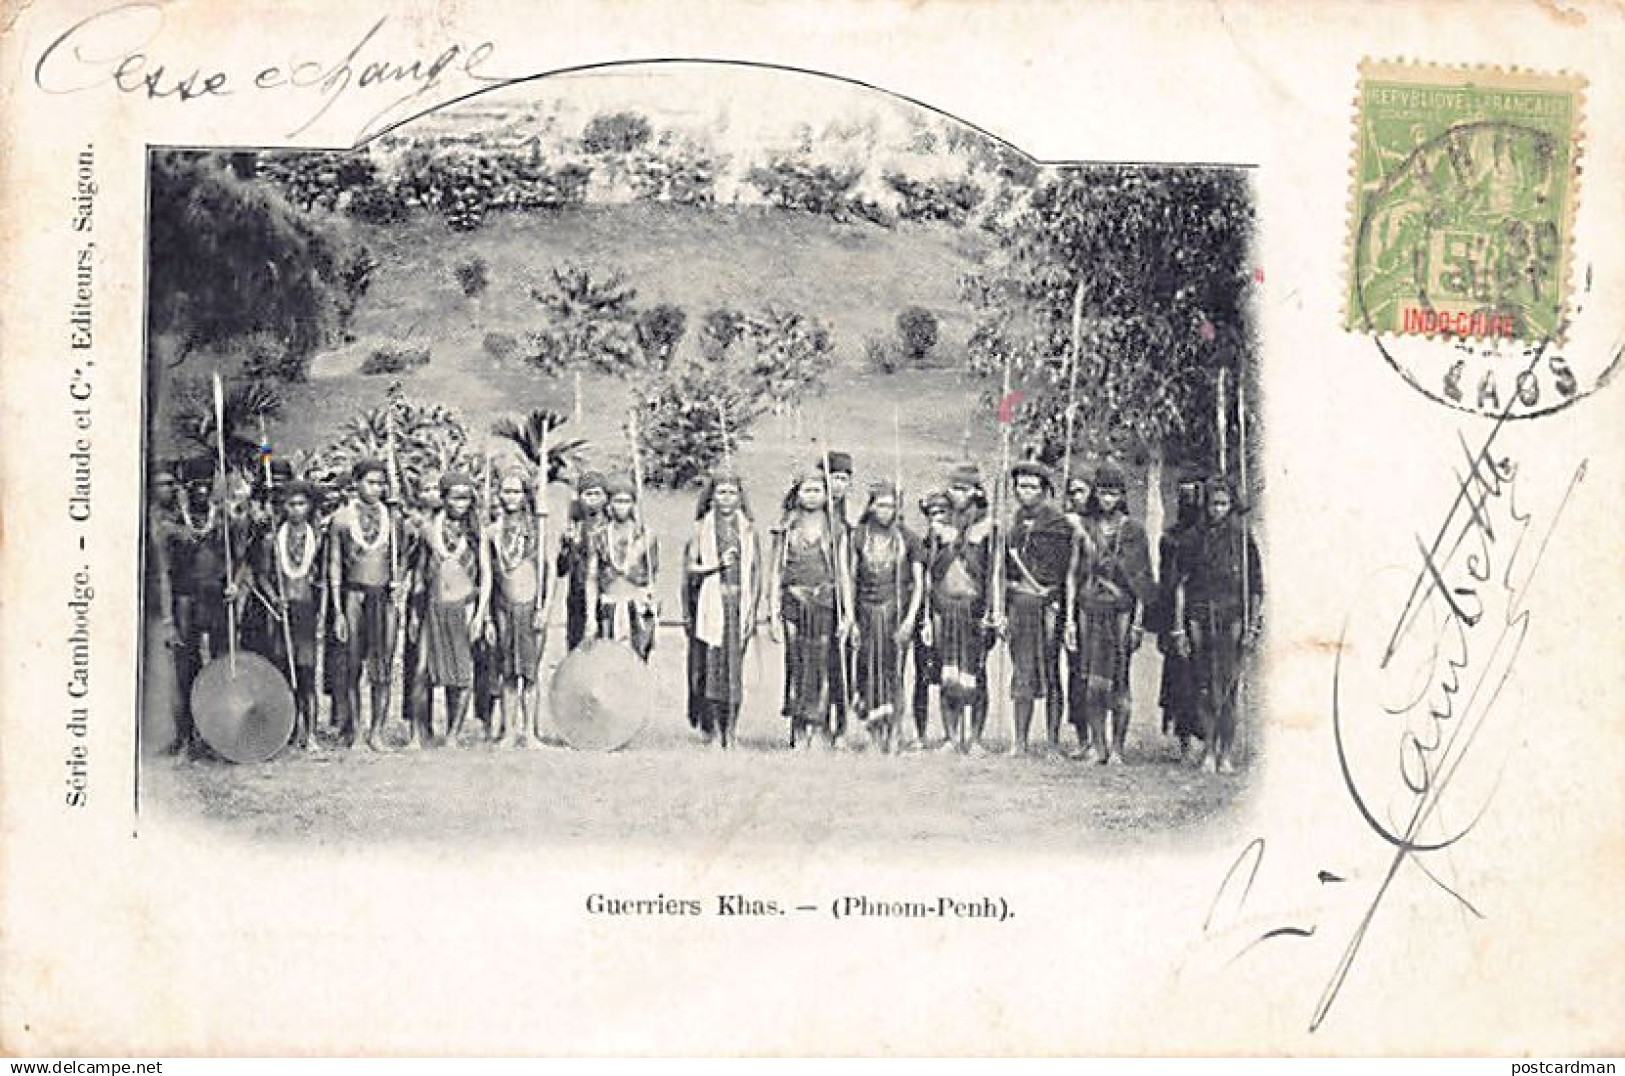 Cesse echange
Série du Cambodge. – Claude et Cie, Editeurs, Saigon.
REPVBLIQVE FRANÇAISE
5
INDO-CHINE
LAOS
Guerriers Khas. — (Phnom-Penh).
postcardman